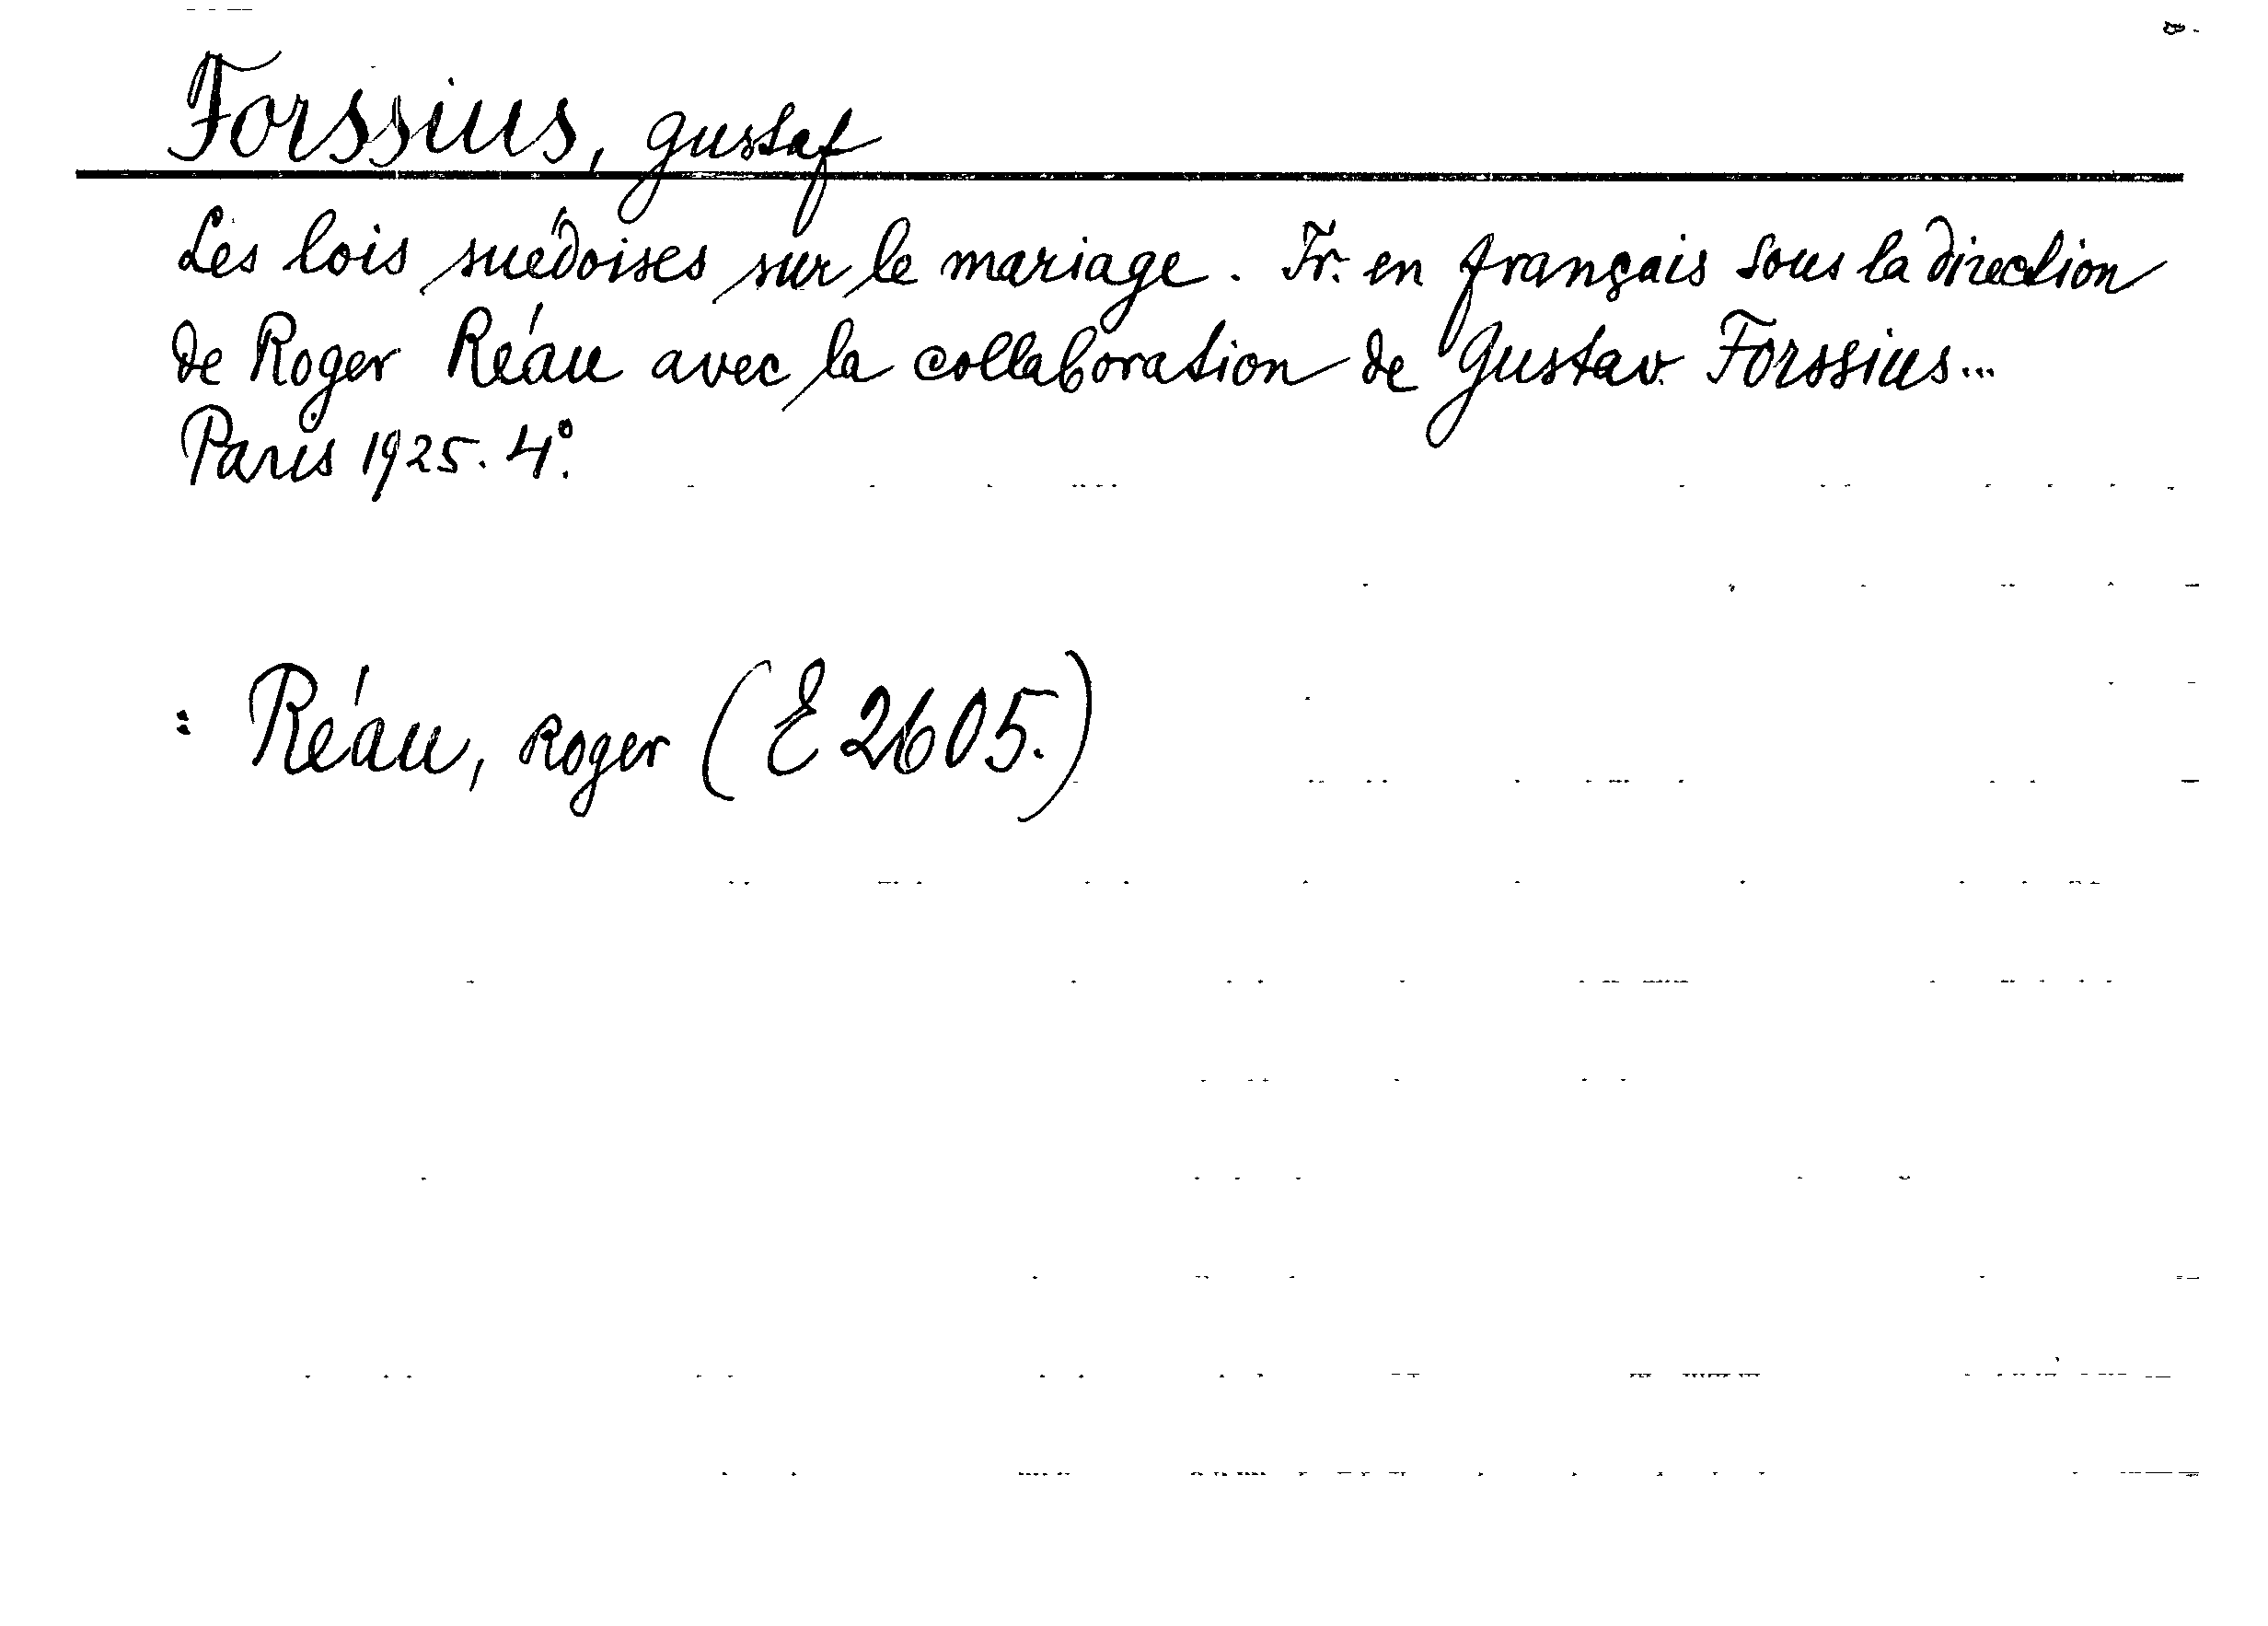 Forssius, Gustaf
Les lois suédoises sur le mariage. Tr. en français sous la direction
de Roger Réau avec la collaboration de Gustav Forssius...
Paris 1925. 4°.
: Réau, Roger (E 2605.)